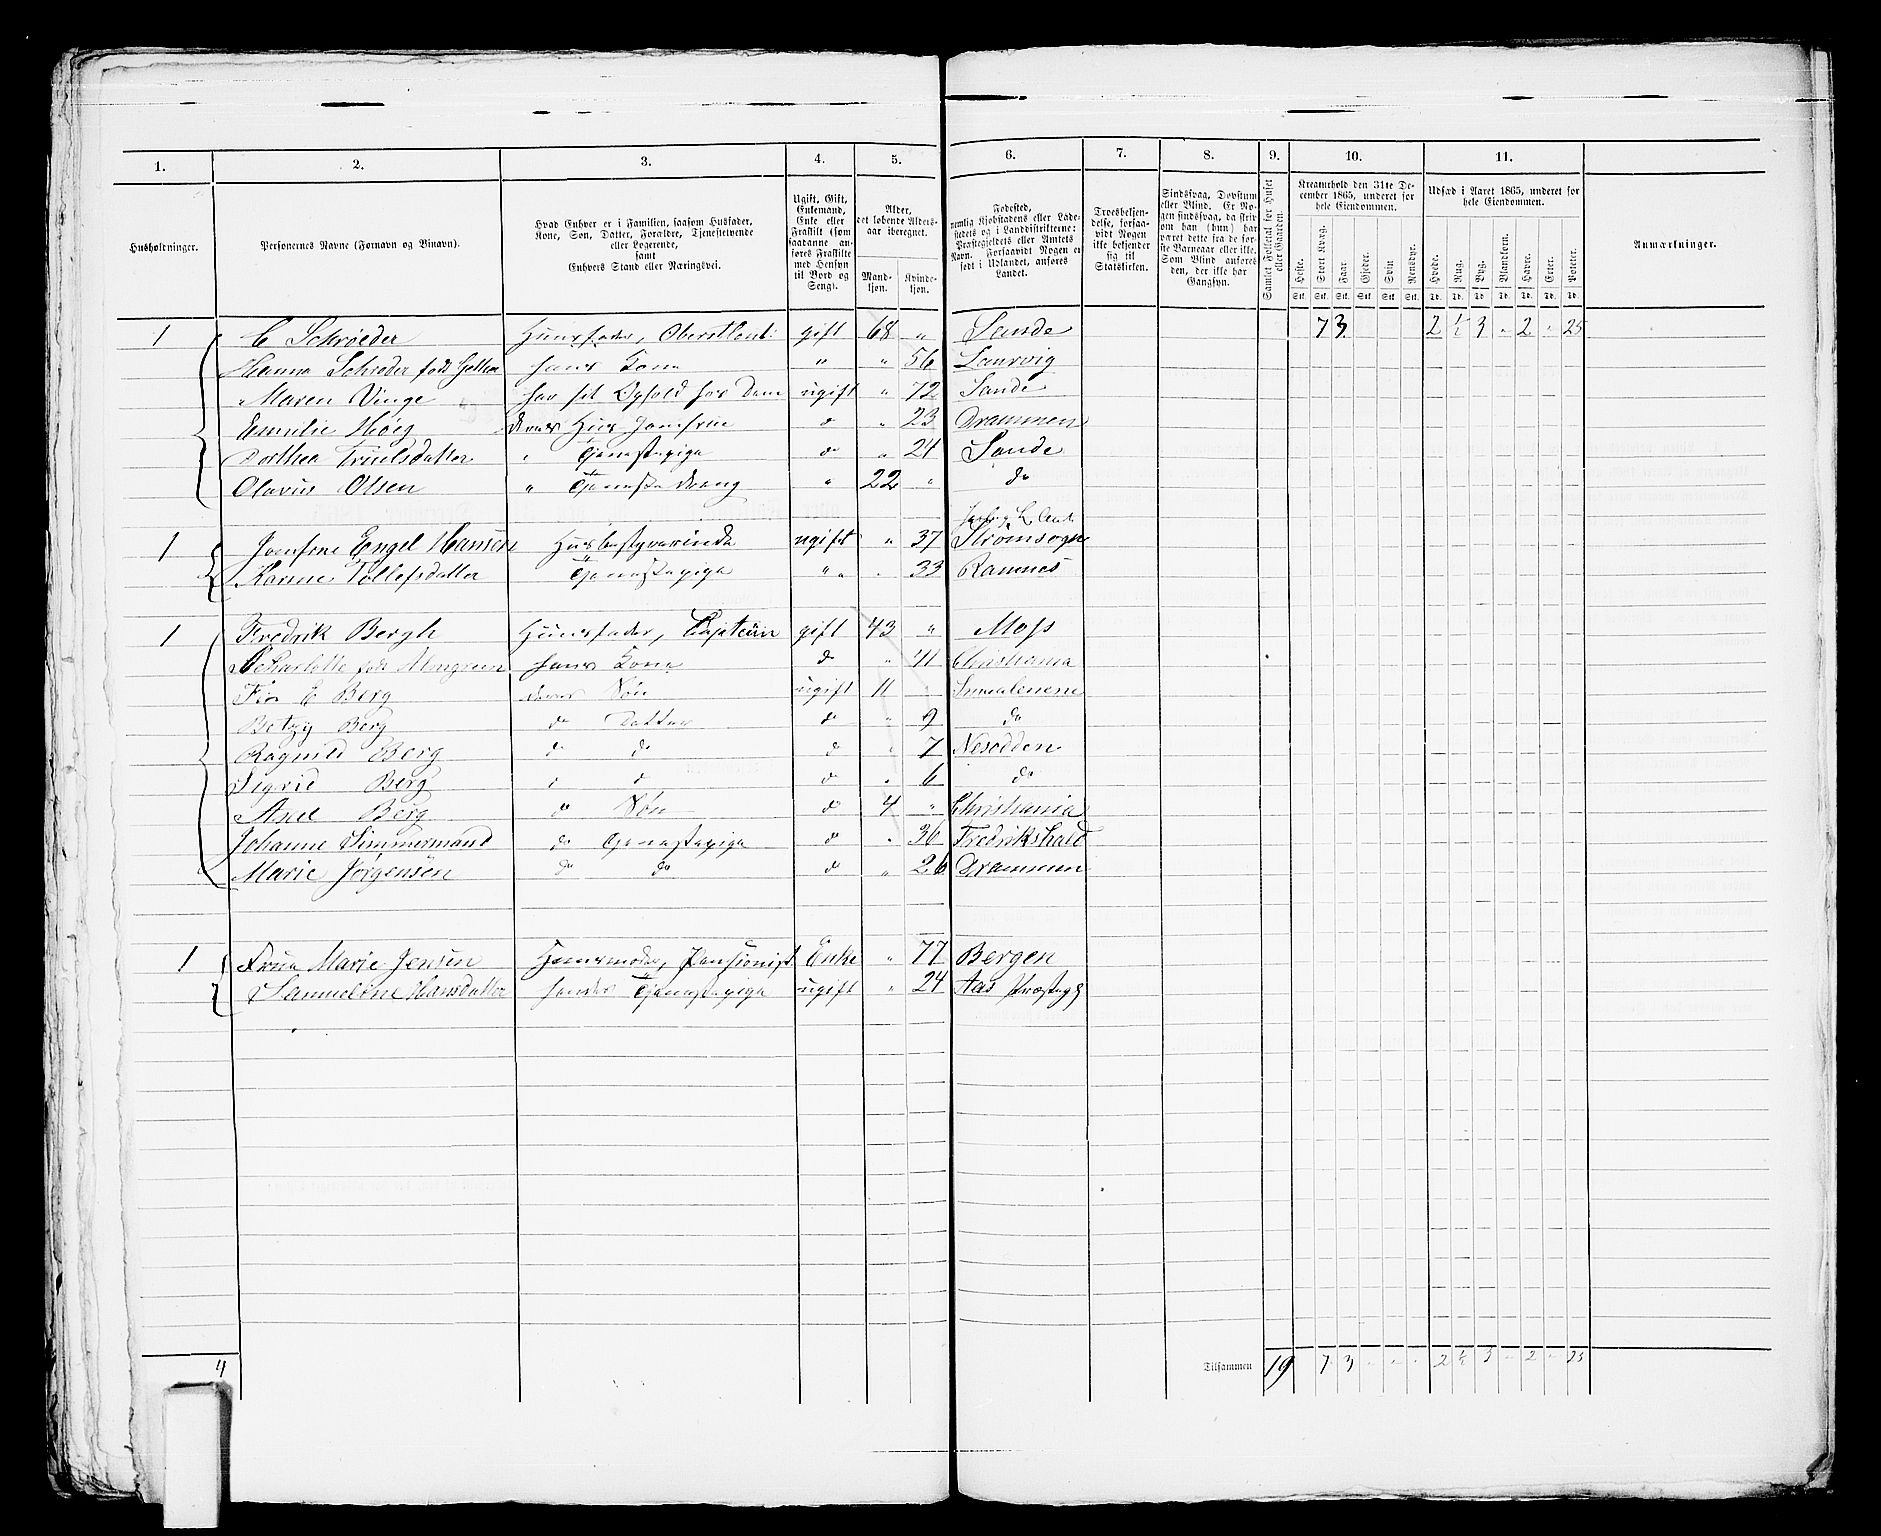 1. 2. 3. 4. 5. 6. 7. 8. 9. 10. 11.
Husholdninger.
Personernes Navne (Fornavn og Vinavn).
Hvad Enhver er i Familien, saasom Husfader,
Kone, Søn, Datter, Forældre, Tjenestetyende
eller Logerende,
samt
Enhvers Stand eller Næringsvei.
Ugift, Gift,
Enkemand,
Enke eller
Fraskilt (som
saadanne an-
føres Fraskilte
med Hensyn
til Bord og
Seng).
Alder,
det løbende Alders-
aar iberegnet.
Mand-
kjøn.
Kvinde-
kjøn.
Fødested,
nemlig Kjøbstadens eller Lade-
stedets og i Landdistrikterne:
Præstegjeldets eller Amtets
Navn. Forsaavidt Nogen er
født i Udlandet, anføres
Landet.
Troesbekjen-
delse, forsaa-
vidt Nogen
ikke bekjender
sig til
Statskirken.
Sindssvag, Døvstum
eller Blind. Er No-
gen sindssvag, da skriv
om han (hun) har
været dette fra de før-
ste Barneaar eller ikke.
Som Blind anføres
den, der ikke har
Gangsyn.
Samlet Folketal for Huset
eller Gaarden.
Kreaturhold den 31te De-
cember 1865, underet for
hele Eiendommen.
Heste. Stort Kvæg. Faar. Gjeder. Svin. Rensdyr.
Stk. Stk. Stk. Stk. Stk. Stk.
Udsæd i Aaret 1865, underet for
hele Eiendommen.
Hvede. Rug. Byg. Blandkorn. Havre. Erter. Poteter.
Td. Td. Td. Td. Td. Td. Td.
Anmærkninger.
1 C Schrøeder Huusfader, Oberstlieut: gift 68 " Sande 7 3. 2 ½ 3 - 2 - 25
Hanna Schrøder født hans Kone " " 56 Laurvig
Maren Vinge har sit Ophold hos Dem ugift " 72 Sande
Emilie Høeg deres Huus Jomfrue d " 23 Drammen
Dorthea Truelsdatter " Tjenestepige d " 24 Sande
Olavus Olsen " Tjeneste dreng " 22 " do
1 Jomfrue Engel Hansen Huusbestyrerinde ugift " 37 Strømsogn
Karine Tollefsdatter Tjenestepige " " 33 Ramnes
1 Fredrik Bergh Huusfader, Capitain gift 43 " Moss
Charlotte født Almgreen hans Kone d " 41 Christiania
C Berg deres Søn ugift 11 Smaalenene
Betzy Berg do Datter d " 9 do
Ragnild Berg do do d " 7 Nesodden
Sigrid Berg d " 6 do
Axel Berg do Søn d 4 " Christiania
Johanne Simmermand do Tjenestepige d " 36 Fredrikshald
Marie Jørgensen do do d " 26 Drammen
1 Frue Marie Jensen Huusmoder, Pensionist Enke " 77 Bergen
Samueline Hansdatter hendes Tjenestepige ugift " 24 Aas Præstegj
4 Tilsammen 19 7 3 - - - 2 ½ 3 - 2 - 25